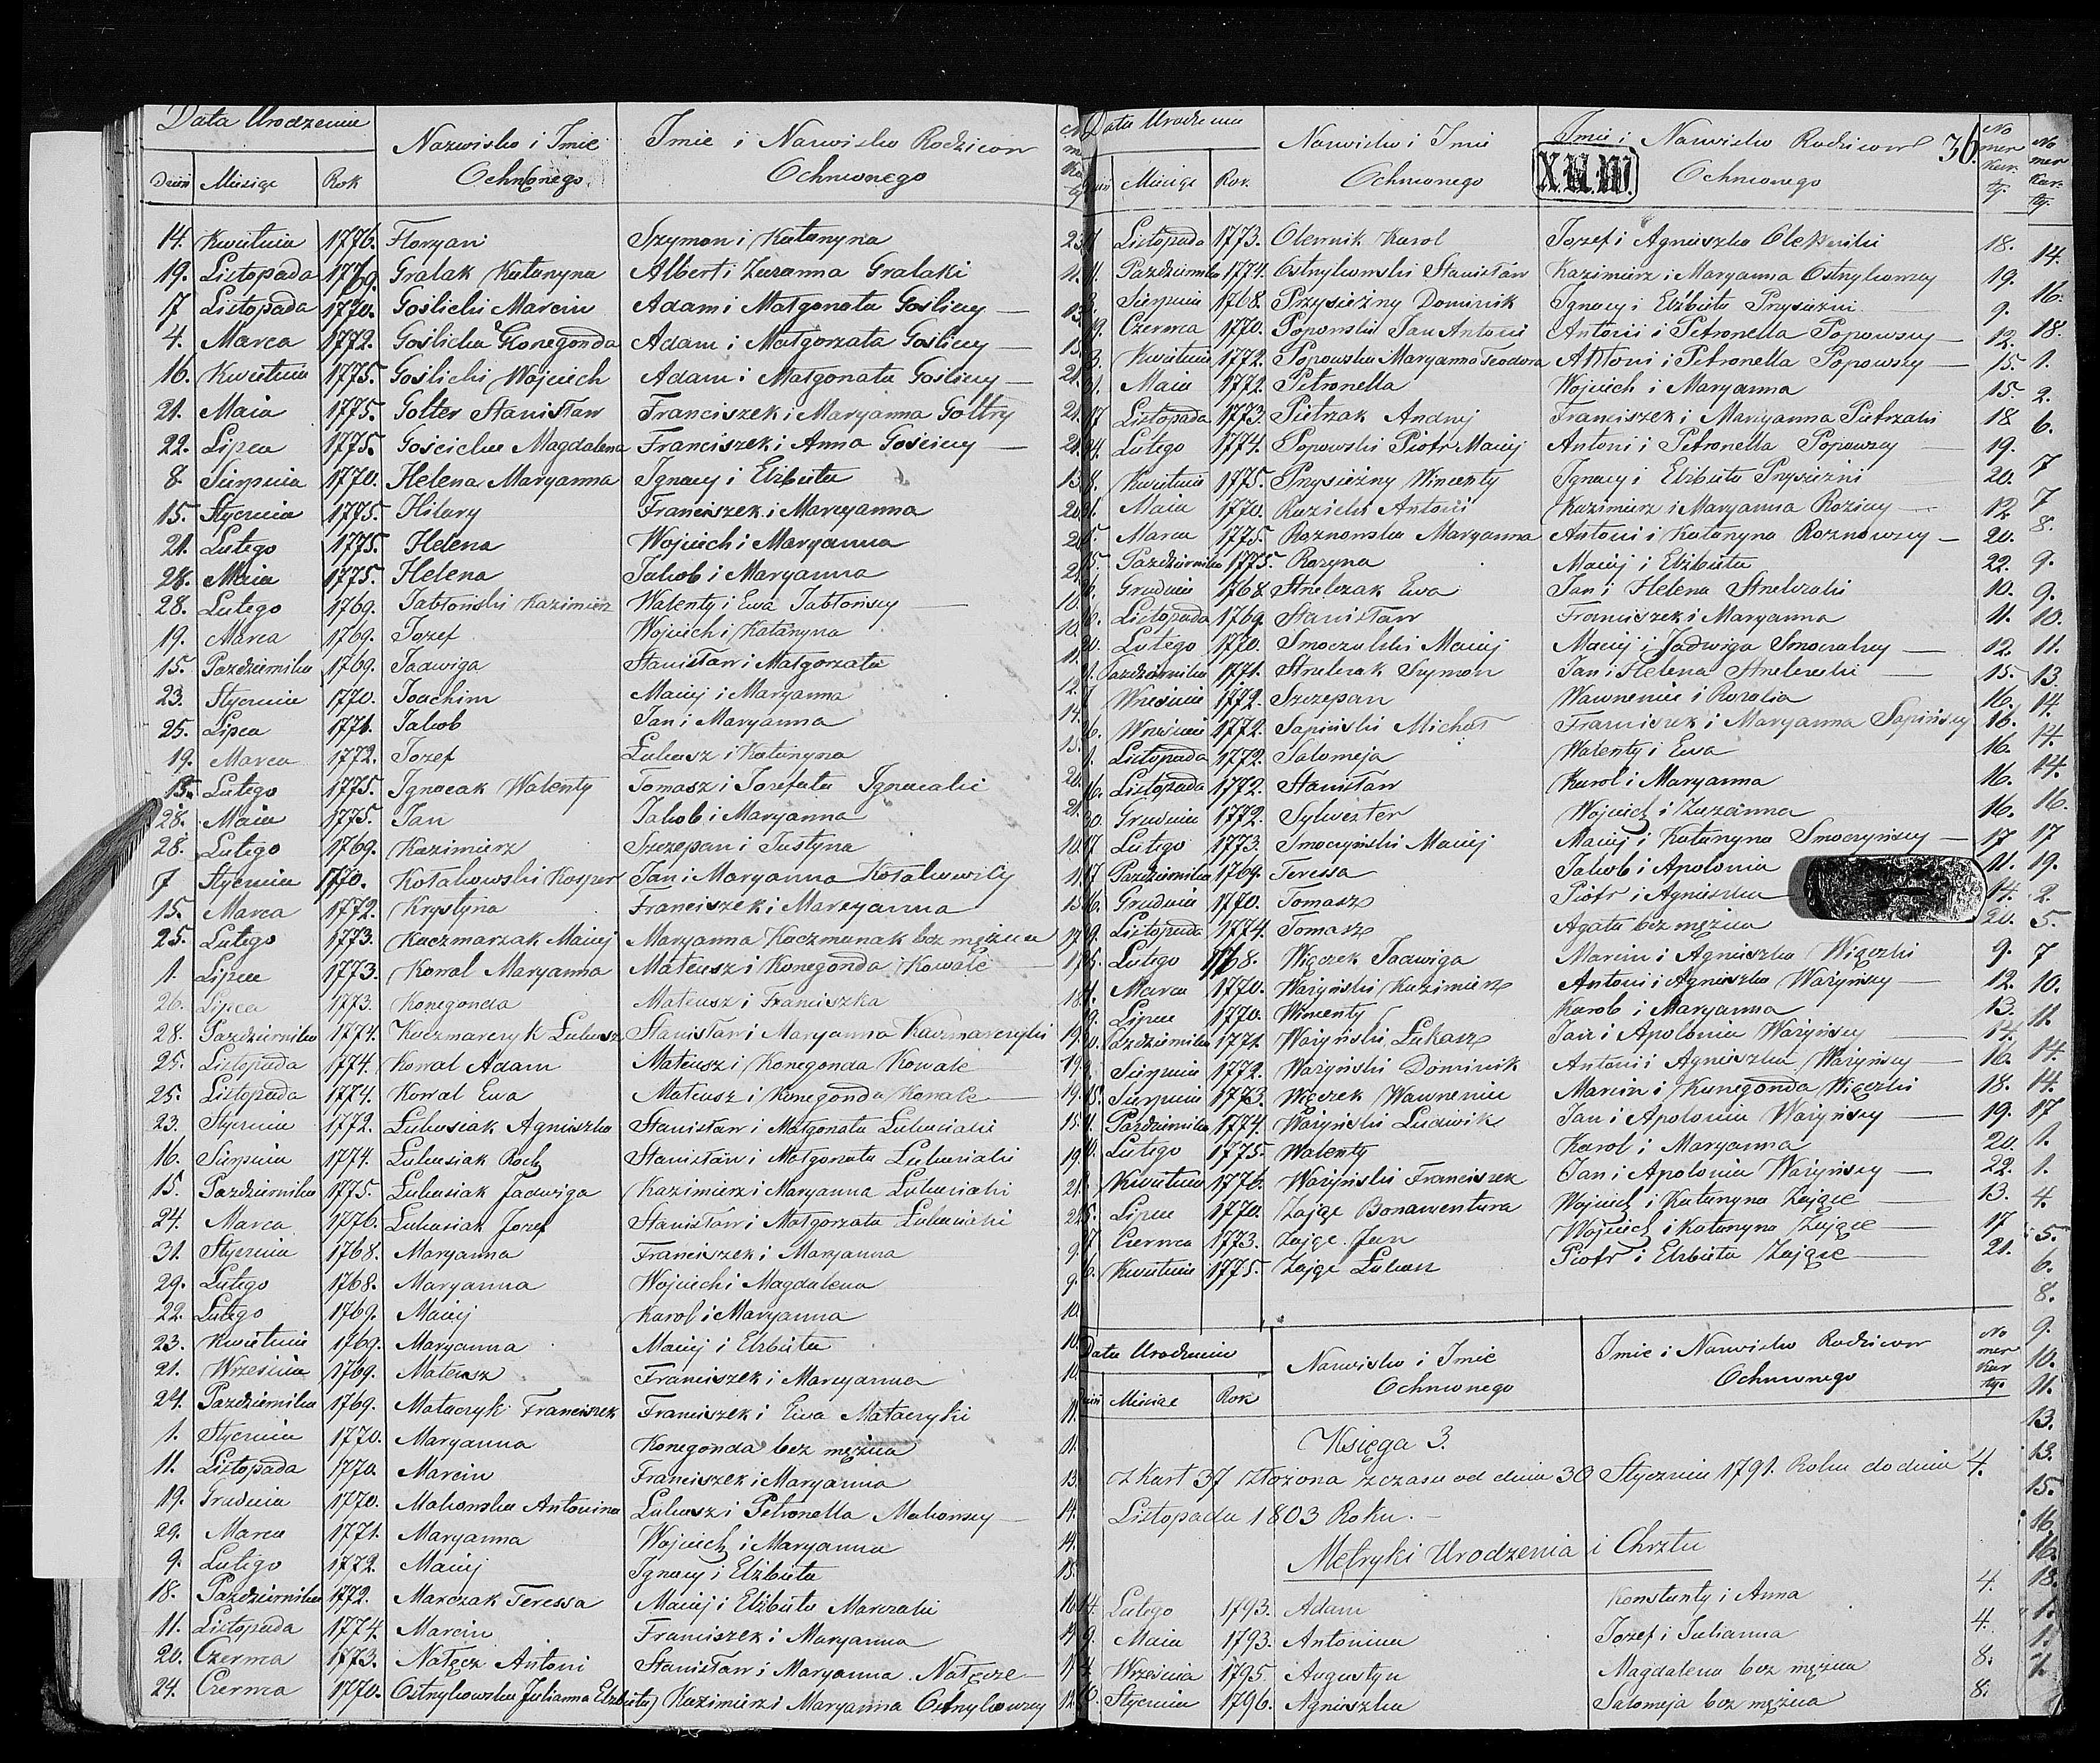 Data Urodzenia
Nazwisko i Imie
Ochrconego
Imie i Nazwisko Rodzicow
Ochrconego
Dzień Miesiąc Rok
14. Kwietnia 1776. Floryan Szymon i Katarzyna
19. Listopada 1769. Gralak Katarzyna Albert i Zuzanna Gralaki
7 Listopada 1770. Goślicki Marcin Adam i Małgorzata Gośliccy
4. Marca 1772. Goślicka Konegonda Adam i Małgorzata Gośliccy
16. Kwietnia 1775. Goślicki Wojciech Adam i Małgorzata Gośliccy
21. Maia 1775. Golter Stanisław Franciszek i Maryanna Goltry
22. Lipca 1775. Gościcka Magdalena Franciszek i Anna Gościccy
8 Sierpnia 1770. Helena Maryanna Ignacy i Elżbieta
15. Stycznia 1775. Hilary Franciszek i Maryanna
21. Lutego 1775. Helena Wojciech i Maryanna
28. Maia 1775. Helena Jakob i Maryanna
28. Lutego 1769. Jabłoński Kazimierz Walenty i Ewa Jabłońscy
19. Marca 1769. Jozef Wojciech i Katarzyna
15. Pazdziernika 1769. Jadwiga Stanisław i Małgorzata
23. Stycznia 1770. Joachim Maciej i Maryanna
25. Lipca 1771. Jakob Jan i Maryanna
19. Marca 1772. Jozef Łukasz i Katarzyna
13. Lutego 1775. Ignacak Walenty Tomasz i Jozefata Ignacaki
28. Maia 1775. Jan Jakob i Maryanna
28. Lutego 1769. Kazimierz Szczepan i Justyna
7 Stycznia 1770. Kołakowski Kasper Jan i Maryanna Kołakowscy
15. Marca 1772. Krystyna Franciszek i Maryanna
25. Lutego 1773. Kaczmarzak Maciej Maryanna Kaczmarzak bez męzna
1. Lipca 1773. Kowal Maryanna Mateusz i Konegonda Kowale
26. Lipca 1773. Konegonda Mateusz i Franciszka
28. Pazdziernika 1774. Kaczmarczyk Łukasz Stanisław i Maryanna Kaczmarczyki
25. Listopada 1774. Kowal Adam Mateusz i Konegonda Kowale
25. Listopada 1774. Kowal Ewa Mateusz i Konegonda Kowale
23. Stycznia 1772. Łukasiak Agnieszka Stanisław i Małgorzata Łukasiaki
16. Sierpnia 1774. Łukasiak Roch Stanisław i Małgorzata Łukasiaki
15. Pazdziernika 1775. Łukasiak Jadwiga Kazimierz i Maryanna Łukasiaki
24. Marca 1776. Łukasiak Jozef Stanisław i Małgorzata Łukasiaki
31. Stycznia 1768. Maryanna Franciszek i Maryanna
29. Lutego 1768. Maryanna Wojciech i Magdalena
22. Lutego 1769. Maciej Karol i Maryanna
23. Kwietnia 1769. Maryanna Maciej i Elżbieta
21. Września 1769. Mateusz Franciszek i Maryanna
24. Pazdziernika 1769. Matacryk Franciszek Franciszek i Ewa Matacryki
1. Stycznia 1770. Maryanna Konegonda bez męzna
11. Listopada 1770. Marcin Franciszek i Maryanna
19. Grudnia 1770. Makowska Antonina Łukasz i Petronella Makowscy
29. Marca 1771. Maryanna Wojciech i Maryanna
9. Lutego 1772. Maciej Ignacy i Elżbieta
18. Pazdziernika 1772. Marczak Teressa Maciej i Elżbieta Marczaki
11. Listopada 1774. Marcin Franciszek i Maryanna
20. Czerwca 1773. Nałęcz Antoni Stanisław i Maryanna Nałęcze
24. Czerwca 1770. Ostrykowska Julianna Elzbieta Kazimierz i Maryanna Ostrykowscy
Data Urodzenia
Nazwisko i Imie
Ochrconego
Imie i Nazwisko Rodzicow 36.
X.M.W.
Ochrconego
No mer Kar- ty.
Miesiąc Rok
Listopada 1773. Olernik Karol Jozef i Agnieszka Olerniki 18.
Pazdziernika 1774. Ostrykowski Stanisław Kazimierz i Maryanna Ostrykowscy 19.
Sierpnia 1768. Przysieżny Dominik Ignacy i Elżbieta Przysieżni 9.
Czerwca 1770. Popowski Jan Antoni Antoni i Petronella Popowscy 12.
Kwietnia 1772. Popowska Maryanna Teodora Antoni i Petronella Popowscy 15.
Maia 1772. Petronella Wojciech i Maryanna 15.
Listopada 1773. Pietrzak Andrzej Franciszek i Maryanna Pietrzaki 18
Lutego 1774. Popowski Piotr Maciej Antoni i Petronella Popowscy 19.
Kwietnia 1775. Przysieżny Wincenty Ignacy i Elżbieta Przysieżni 20.
Maia 1770. Rozicki Antoni Kazimierz i Maryanna Roziccy 12
Marca 1775. Roznowska Maryanna Antoni i Katarzyna Roznowscy 20.
Pazdziernika 1775. Rozyna Maciej i Elżbieta 22.
Grudnia 1768 Strelczak Ewa Jan i Helena Strelczaki 10.
Listopada 1769. Stanisław Franciszek i Maryanna 11.
Lutego 1770. Smoczulski Maciej Maciej i Jadwiga Smoczulscy 12.
Pazdziernika 1771. Strelczak Szymon Jan i Helena Strelczaki 15.
Wrzesnia 1772. Szczepan Wawrzeniec i Rozalia 16.
Wrzesnia 1772. Sapiński Michał Franciszek i Maryanna Sapińscy 16.
Listopada 1772. Salomeja Walenty i Ewa 16.
Listopada 1772. Stanisław Karol i Maryanna 16.
30. Grudnia 1772. Sylwester Wojciech i Zuzanna 16.
Lutego 1773. Smoczyński Maciej Maciej i Katarzyna Smoczyńscy 17
Pazdziernika 1769. Teressa Jakob i Apolonia 11.
Grudnia 1770. Tomasz Piotr i Agnieszka 14.
Listopada 1774. Tomasz Agata bez męzna 20.
Lutego 1768. Więczek Jadwiga Marcin i Agnieszka Więczki 9.
Marca 1770. Ważyński Kazimierz Antoni i AgnieszkaWażyńscy 12.
Lipca 1770. Wincenty Karol i Maryanna 13.
Pazdziernika 1771. Ważyński Łukasz Jan i ApoloniaWażyńscy 14.
Sierpnia 1772. Ważyński Dominik Antoni i AgnieszkaWażyńscy 16.
Sierpnia 1773. Więczek Wawrzeniec Marcin i Kunegonda Więczki 18.
Pazdziernika 1774. Ważyński Ludwik Jan i ApoloniaWażyńscy 19.
Lutego 1775. Walenty Karol i Maryanna 20.
Kwietnia 1776. Ważyński Franciszek Jan i ApoloniaWażyńscy 22.
Lipca 1770. Zając Bonawentura Wojciech i Katarzyna Zające 13.
Czerwca 1773. Zając Jan Wojciech i Katarzyna Zające 17
Kwietnia 1775. Zając Łukasz Piotr i Elzbieta Zające 21.
Data Urodzenia
Nazwisko i Imie
Ochrconego
Imie i Nazwisko Rodzicow
Ochrconego
No mer Kar ty.
Miesiąc Rok
Księga 3.
z kart 37 złożona z czasu od dnia 30 Stycznia 1791. Roku do dnia 4.
Listopada 1803 Roku.
Metryki Urodzenia i Chrztu
Lutego 1793. Adam Konstanty i Anna 4.
Maia 1793. Antonina Jozef i Julianna 4.
Września 1795. Augustyn Magdalena bez męzna 8.
Stycznia 1796. Agnieszka Salomeja bez męzna 8.